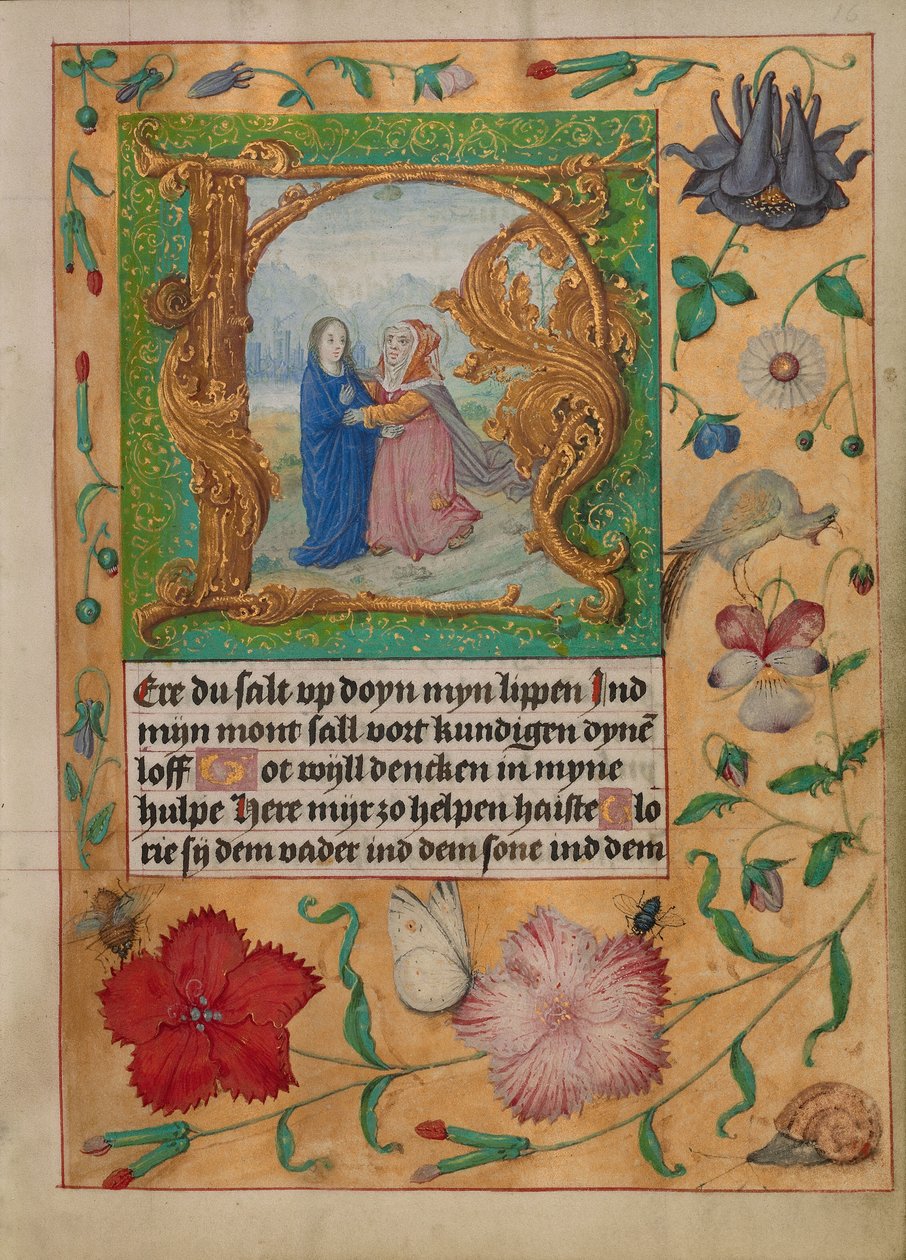 16
H
Ere du salt vp doyn myn lippen Ind
mijn mont sall vort kundigen dynē
loff Got wijll dencken in myne
hulpe Here mijr zo helpen haiste Glo
rie sij dem vader ind dem sone ind dem